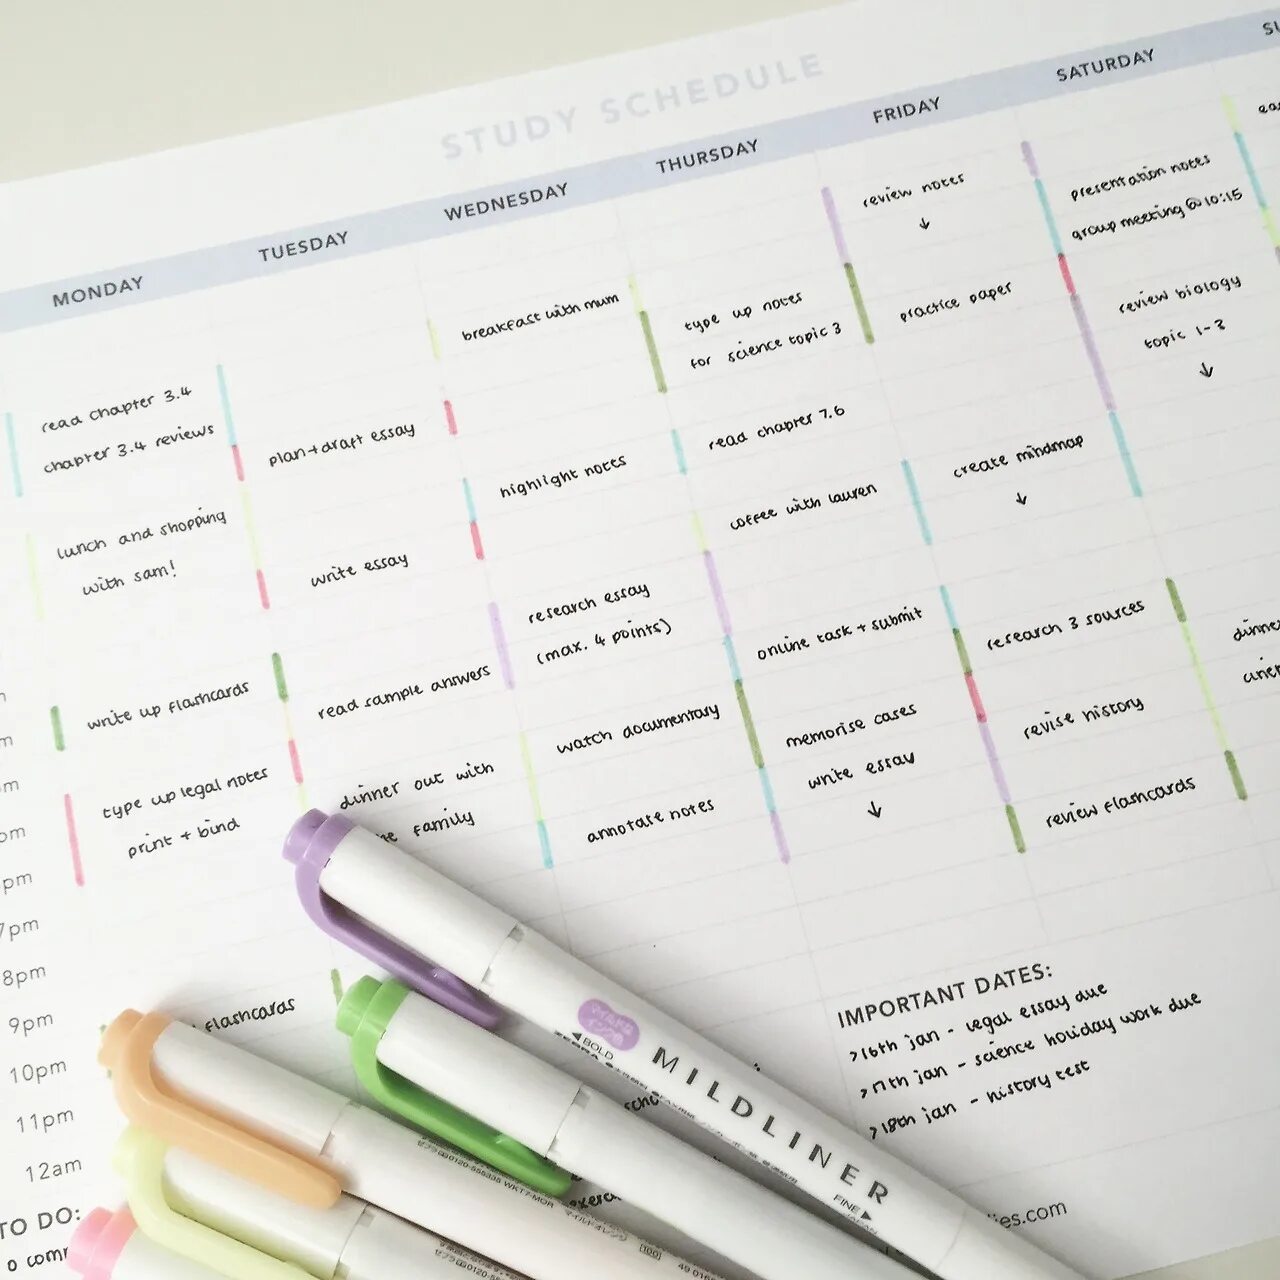 STUDY SCHEDULE
MONDAY
TUESDAY
WEDNESDAY
THURSDAY
FRIDAY
SATURDAY
read chapter 3.4
chapter 3.4 reviews
lunch and shopping
with sam!
write up flashcards
type up legal notes
print + bind
flashcards
plan + draft essay
write essay
read sample answers
dinner out with
family
breakfast with mum
highlight notes
research essay
(max. 4 points)
watch documentary
annotate notes
type up notes
for science topic 3
read chapter 7.6
coffee with lauren
online task + submit
memorise cases
write essay
↓
review notes
↓
practice paper
create mindmap
↓
research 3 sources
revise history
review flashcards
presentation notes
group meeting @ 10:15
review biology
topic 1-3
↓
pm
7pm
8pm
9pm
10pm
11pm
12am
TO DO:
IMPORTANT DATES:
> 16th jan - legal essay due
> 17th jan - science holiday work due
> 18th jan - history test
マイルドな
インク色
◀ BOLD
ZEBRA
MILDLINER
FINE ▶
JAPAN
ゼブラ 0120-555335 WKT7-MOR
マイルドオレンジ
[100]